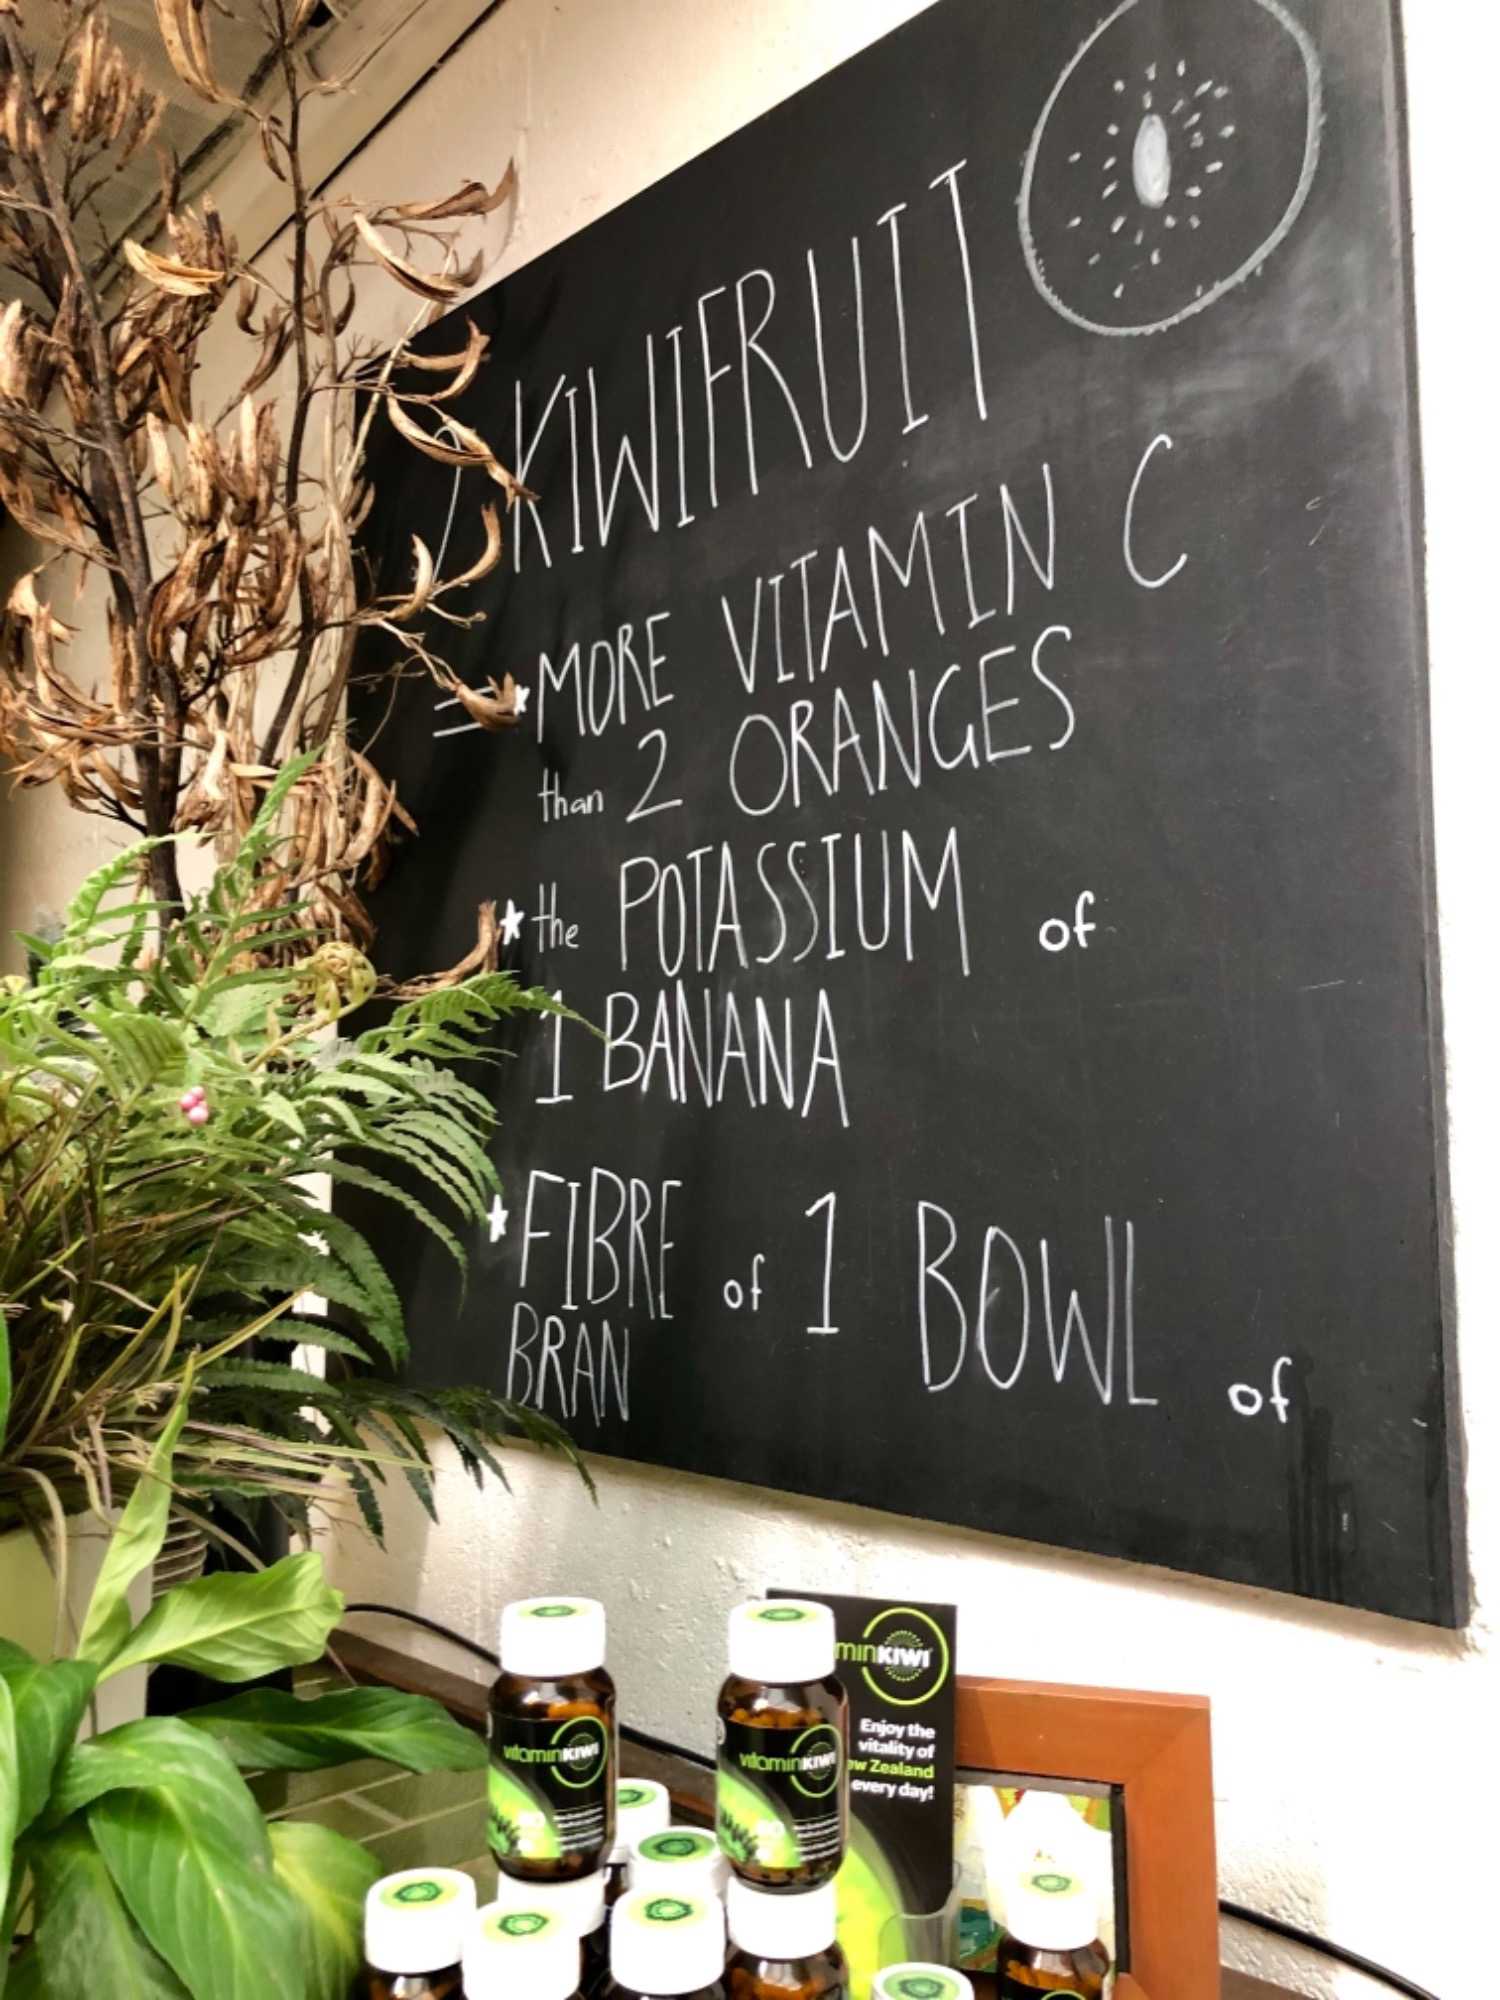 2 KIWIFRUIT
= * MORE VITAMIN C
than 2 ORANGES
* the POTASSIUM of
1 BANANA
* FIBRE of 1 BOWL of
BRAN
vitaminKIWI
vitaminKIWI
minKIWI
Enjoy the
vitality of
ew Zealand
every day!